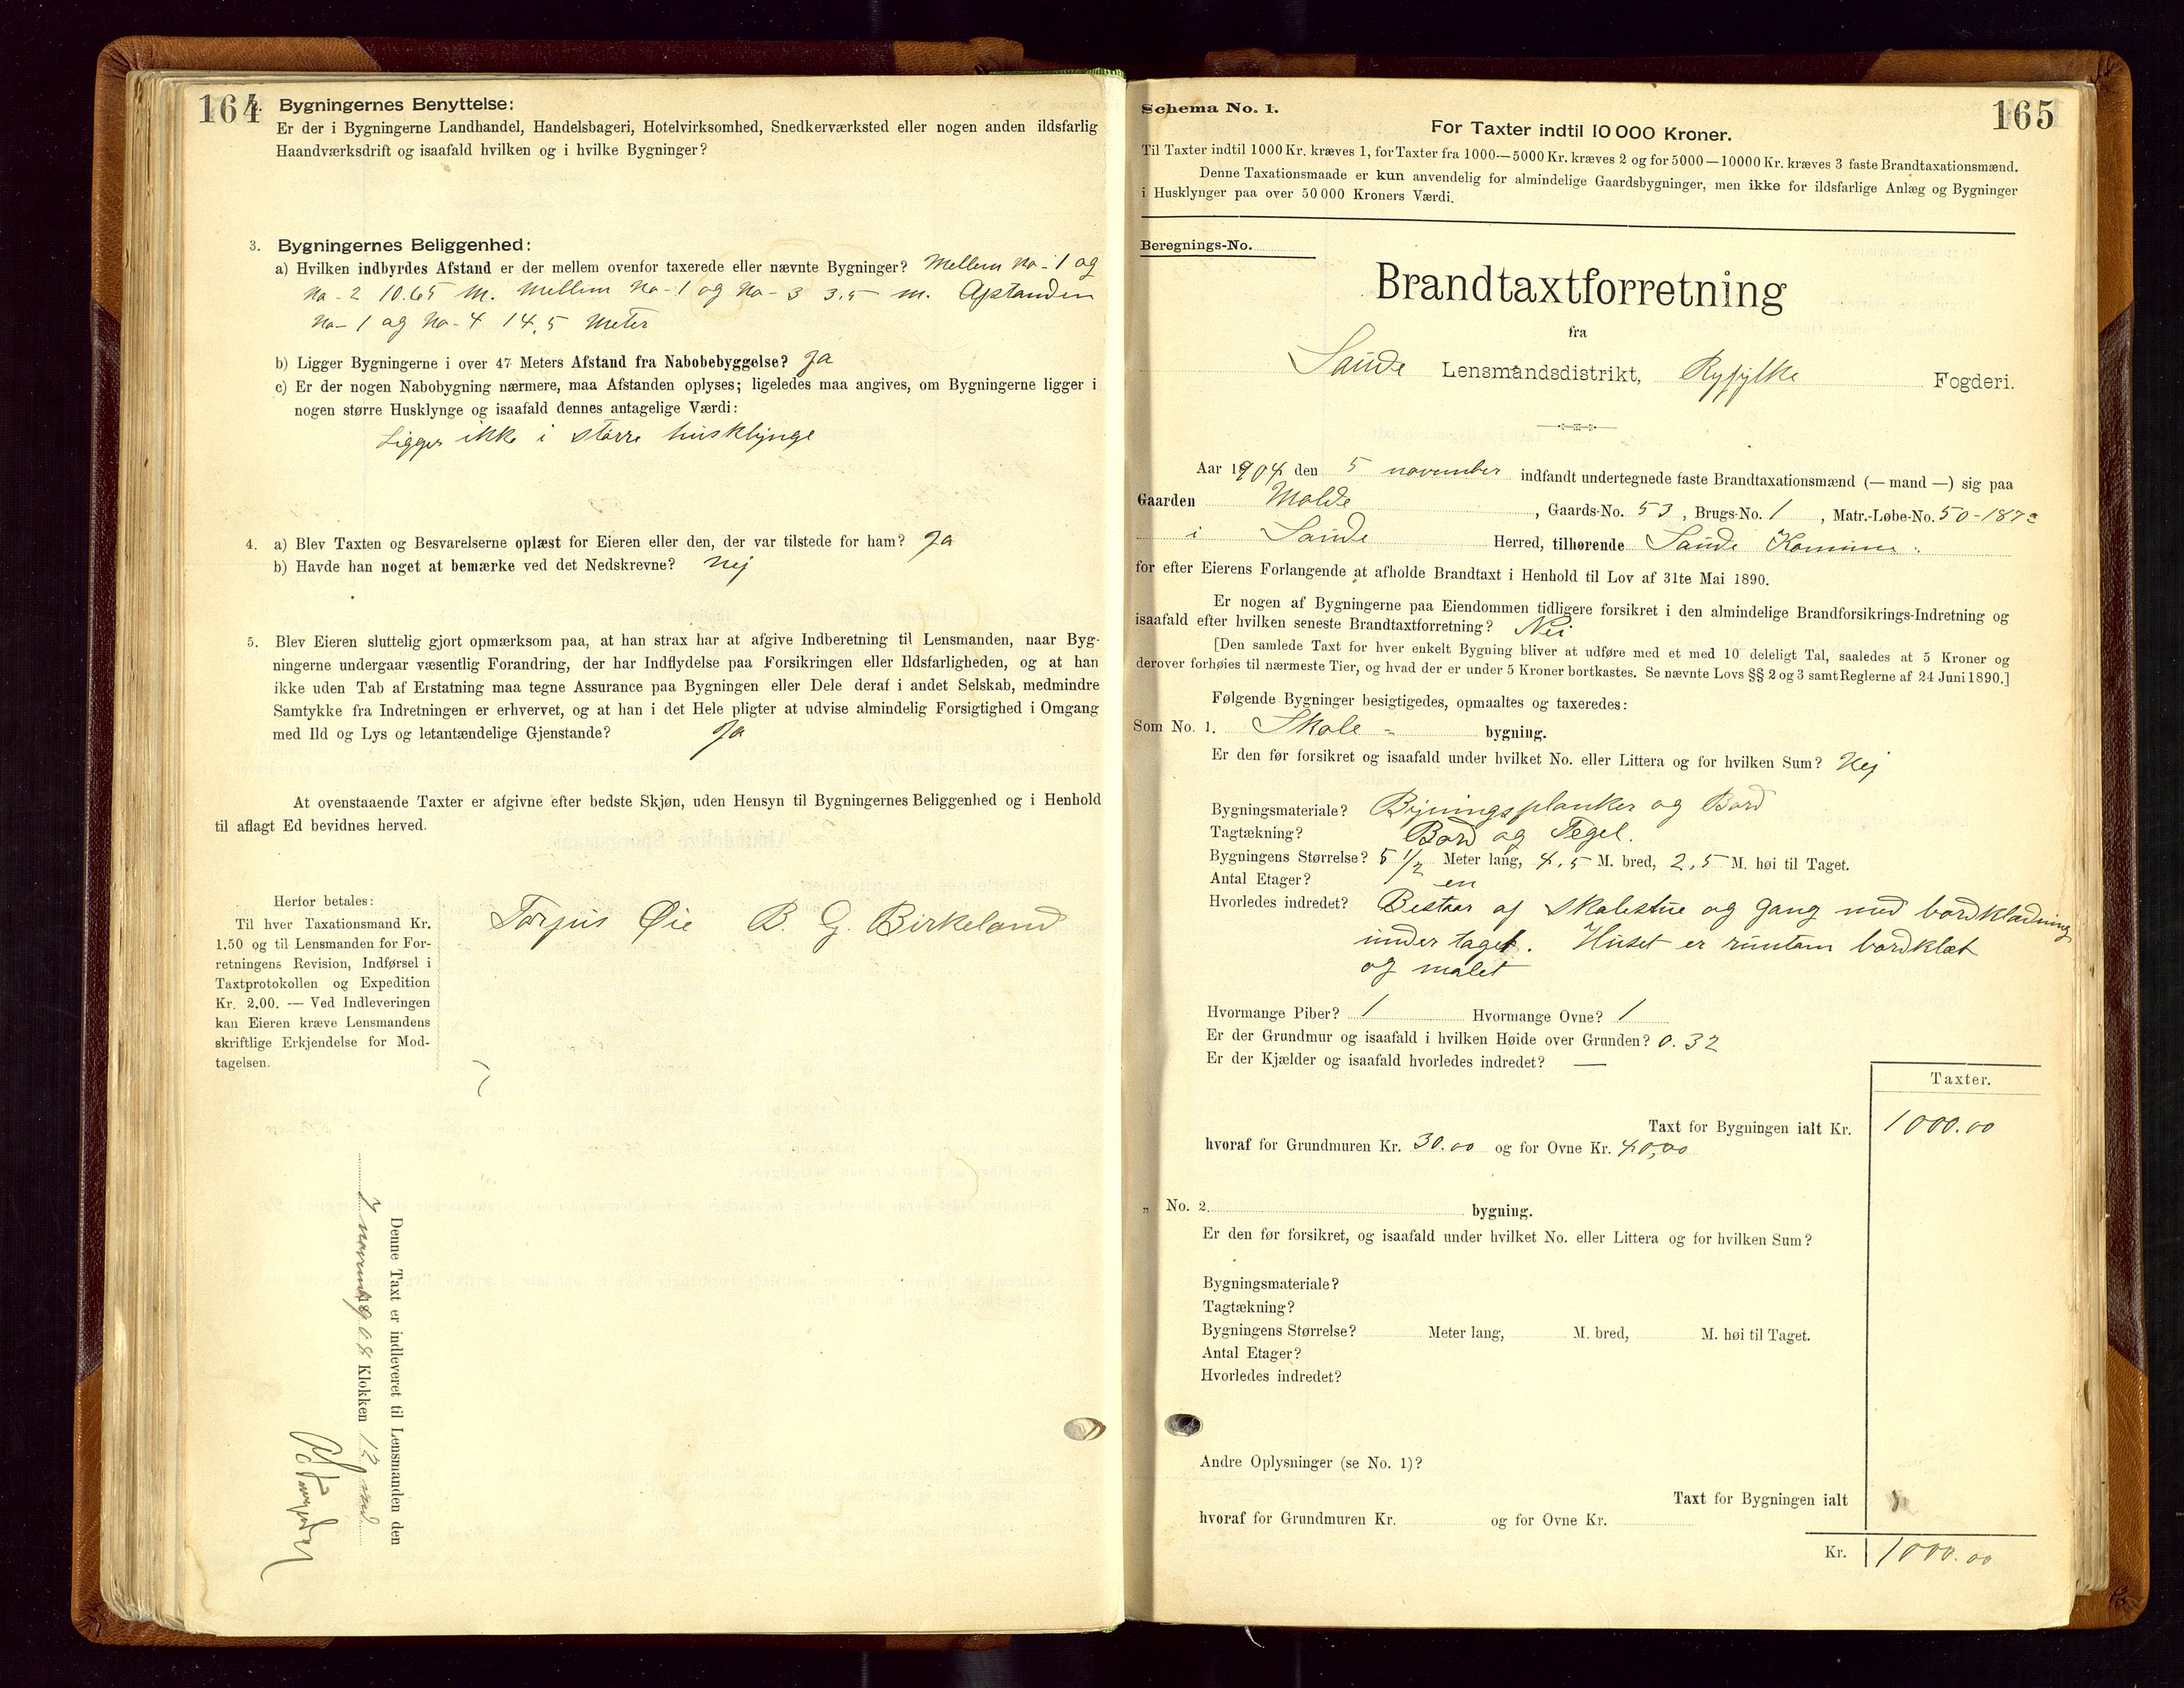 164
2. Bygningernes Benyttelse:
Er der i Bygningerne Landhandel, Handelsbageri, Hotelvirksomhed, Snedkerværksted eller nogen anden ildsfarlig
Haandværksdrift og isaafald hvilken og i hvilke Bygninger?
3. Bygningernes Beliggenhed:
a) Hvilken indbyrdes Afstand er der mellem ovenfor taxerede eller nævnte Bygninger? Mellem No-1 og
No-2 10.65 M. Mellem No-1 og No-3 3,5 m. Afstanden
No-1 og No-4 14,5 Meter
b) Ligger Bygningerne i over 47 Meters Afstand fra Nabobebyggelse? Ja
c) Er der nogen Nabobygning nærmere, maa Afstanden oplyses; ligeledes maa angives, om Bygningerne ligger i
nogen større Husklynge og isaafald dennes antagelige Værdi:
Ligger ikke i større husklynge
4. a) Blev Taxten og Besvarelserne oplæst for Eieren eller den, der var tilstede for ham? Ja
b) Havde han noget at bemærke ved det Nedskrevne? Nej
5. Blev Eieren sluttelig gjort opmærksom paa, at han strax har at afgive Indberetning til Lensmanden, naar Byg-
ningerne undergaar væsentlig Forandring, der har Indflydelse paa Forsikringen eller Ildsfarligheden, og at han
ikke uden Tab af Erstatning maa tegne Assurance paa Bygningen eller Dele deraf i andet Selskab, medmindre
Samtykke fra Indretningen er erhvervet, og at han i det Hele pligter at udvise almindelig Forsigtighed i Omgang
med Ild og Lys og letantændelige Gjenstande? Ja
At ovenstaaende Taxter er afgivne efter bedste Skjøn, uden Hensyn til Bygningernes Beliggenhed og i Henhold
til aflagt Ed bevidnes herved.
Herfor betales:
Til hver Taxationsmand Kr.
1.50 og til Lensmanden for For-
retningens Revision, Indførsel i
Taxtprotokollen og Expedition
Kr. 2.00. — Ved Indleveringen
kan Eieren kræve Lensmandens
skriftlige Erkjendelse for Mod-
tagelsen.
Torjus Øie B. G. Birkeland
Denne Taxt er indleveret til Lensmanden den
7 november 1904 Klokken 12 md
Schema No. 1.
165
For Taxter indtil 10 000 Kroner.
Til Taxter indtil 1000 Kr. kræves 1, for Taxter fra 1000—5000 Kr. kræves 2 og for 5000—10000 Kr. kræves 3 faste Brandtaxationsmænd.
Denne Taxationsmaade er kun anvendelig for almindelige Gaardsbygninger, men ikke for ildsfarlige Anlæg og Bygninger
i Husklynger paa over 50 000 Kroners Værdi.
Beregnings-No.
Brandtaxtforretning
fra
Saude Lensmandsdistrikt, Ryfylke Fogderi.
Aar 1904 den 5 november indfandt undertegnede faste Brandtaxationsmænd (— mand —) sig paa
Gaarden Molde, Gaards-No. 53, Brugs-No. 1, Matr.-Løbe-No. 50-187a
i Saude Herred, tilhørende Saude Komune
for efter Eierens Forlangende at afholde Brandtaxt i Henhold til Lov af 31te Mai 1890.
Er nogen af Bygningerne paa Eiendommen tidligere forsikret i den almindelige Brandforsikrings-Indretning og
isaafald efter hvilken seneste Brandtaxtforretning? Nei
[Den samlede Taxt for hver enkelt Bygning bliver at udføre med et med 10 deleligt Tal, saaledes at 5 Kroner og
derover forhøies til nærmeste Tier, og hvad der er under 5 Kroner bortkastes. Se nævnte Lovs §§ 2 og 3 samt Reglerne af 24 Juni 1890.]
Følgende Bygninger besigtigedes, opmaaltes og taxeredes:
Som No. 1. Skole - bygning.
Er den før forsikret og isaafald under hvilket No. eller Littera og for hvilken Sum? Nej
Bygningsmateriale? Bygningsplanker og Bord
Tagtækning? Bord og Tegel.
Bygningens Størrelse? 5 1/2 Meter lang, 4,5 M. bred, 2,5 M. høi til Taget.
Antal Etager? en
Hvorledes indredet? Bestaar af skolestue og gang med bordklædning
under taget. Huset er rundtom bordklæt
og malet
Hvormange Piber? 1 Hvormange Ovne? 1
Er der Grundmur og isaafald i hvilken Høide over Grunden? 0.32
Er der Kjælder og isaafald hvorledes indredet? —
Taxter.
Taxt for Bygningen ialt Kr. 1000.00
hvoraf for Grundmuren Kr. 30.00 og for Ovne Kr. 40,00
„ No. 2. bygning.
Er den før forsikret, og isaafald under hvilket No. eller Littera og for hvilken Sum?
Bygningsmateriale?
Tagtækning?
Bygningens Størrelse? Meter lang, M. bred, M. høi til Taget.
Antal Etager?
Hvorledes indredet?
Andre Oplysninger (se No. 1)?
Taxt for Bygningen ialt
hvoraf for Grundmuren Kr. og for Ovne Kr.
Kr. 1000.00